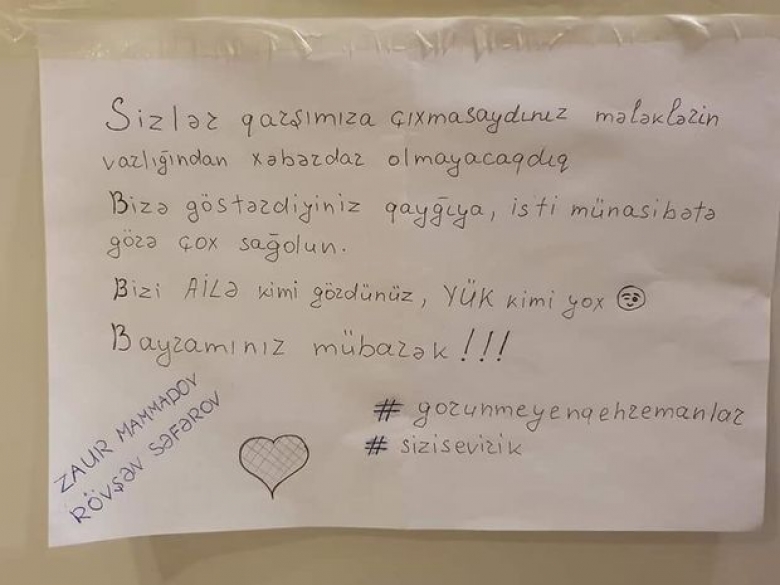 Sizlər qarşımıza çıxmasaydınız mələklərin
varlığından xəbərdar olmayacaqdıq
Bizə göstərdiyiniz qayğıya, isti münasibətə
görə çox sağolun.
Bizi AİLƏ kimi gördünüz, YÜK kimi yox
Bayramınız mübarək!!!
# gorunmeyenqehremanlar
# sizisevirik
ZAUR MAMMADOV
RÖVŞƏN SƏFƏROV